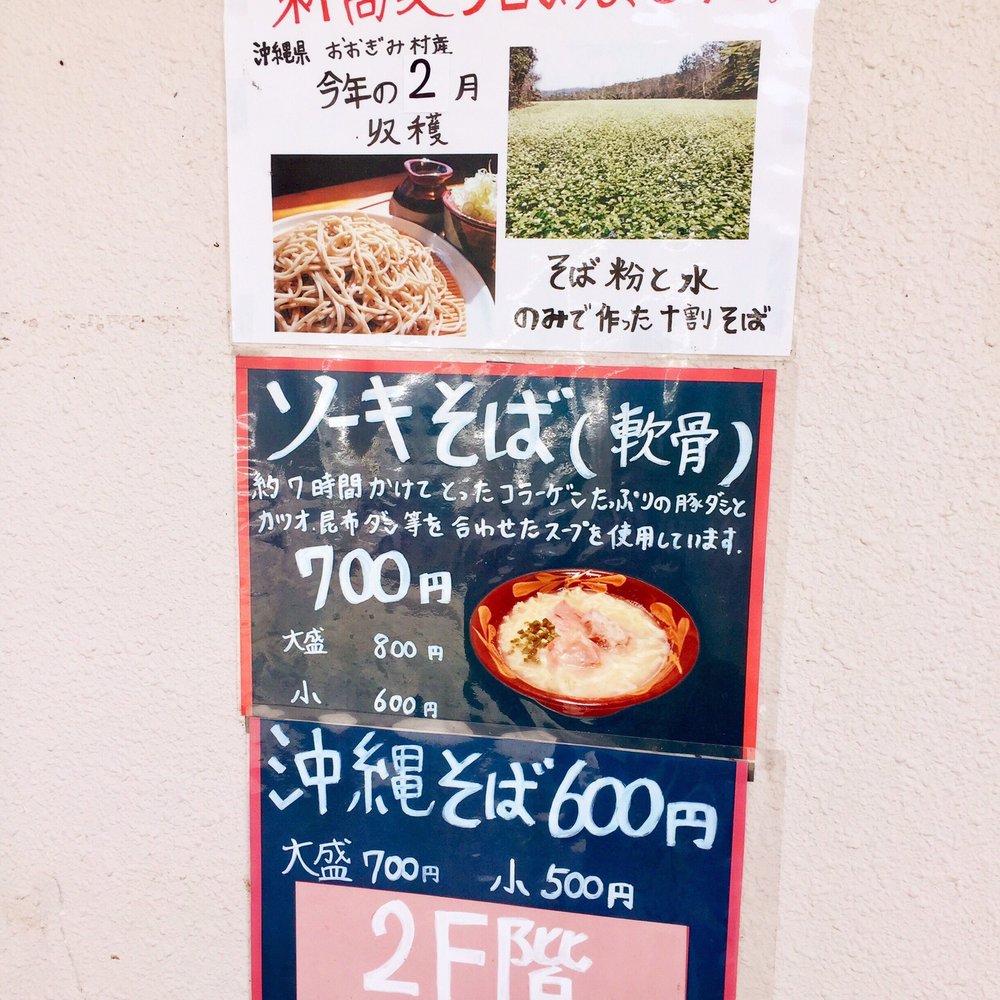 沖縄県 おおぎみ村産
今年の2月
収穫
そば粉と水
のみで作った十割そば
ソーキそば(軟骨)
約7時間かけてとったコラーゲンたっぷりの豚ダシと
カツオ.昆布ダシ等を合わせたスープを使用しています.
700円
大盛 800円
小 600円
沖縄そば600円
大盛700円 小500円
2F階